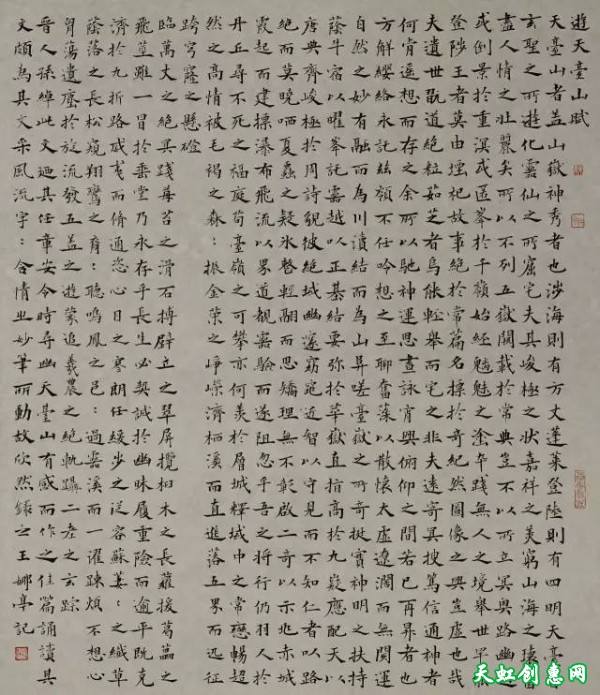 遊天臺山賦
天臺山者蓋山嶽神秀者也涉海則有方丈蓬萊登陸則有四明天臺皆
玄聖之所遊化靈仙之所窟宅夫其峻極之狀嘉祥之美窮山海之瓌富
盡人情之壯麗矣所以不列五嶽闕載於常典豈不以所立冥奧路幽迥
或倒景於重溟或匿峯於千嶺始經魑魅之塗卒踐無人之境舉世罕能
登陟王者莫由禋祀故事絕於常篇名標於奇紀然圖像之興豈虛也哉非
夫遺世翫道絕粒茹芝者烏能輕舉而宅之非夫遠寄冥搜篤信通神者
何肯遙想而存之余所以馳神運思晝詠宵興俯仰之間若已再昇者也
方解纓絡永託茲嶺不任吟想之至聊奮藻以散懷太虛遼闊而無閡運
自然之妙有融而為川瀆結而為山阜嗟臺嶽之奇挺實神明之扶持
蔭牛宿以曜峯託靈越以正基結要弥於華嶽直指高於九疑應配天以
唐典齊峻極於周詩邈彼絕域幽邃窈窕近智以守見不知仁者以路
絕而莫曉哂夏蟲之疑冰整輕翮而思矯理無不彰啟二奇以示兆赤城
霞起而建標瀑布飛流以界道覩靈驗而遂阻忽乎吾之將行仍羽人於
丹丘尋不死之福庭苟臺嶺之可攀亦何羨於層城釋城中之常戀暢超
然之高情被毛褐之森：振金策之崢嶸濟楢溪而直進落五界而迅征
跨穹窿之懸磴
臨萬丈之絕冥踐莓苔之滑石搏壁立之翠屏攬樛木之長蘿援葛藟之
飛莖雖一冒於垂堂乃永存乎長生必契誠於幽昧履重險而逾平既克
濟於九折路威夷而脩通恣心目之寒朗任緩步之從容蘇萋：之纖草
蔭落落之長松窺翔鸞之裔：聽鳴鳳之邕：過靈溪而一濯疎煩想心
胷蕩遺塵於旋流發五蓋之遊蒙追羲農之絕軌躡二老之玄踪
晉人孫綽此文迺其任章安令時尋幽天臺山有感而作之佳篇誦讀其
文頗為其文采風流字：合情出妙筆所動故欣然錄之王娜亭記
天虹创惠网